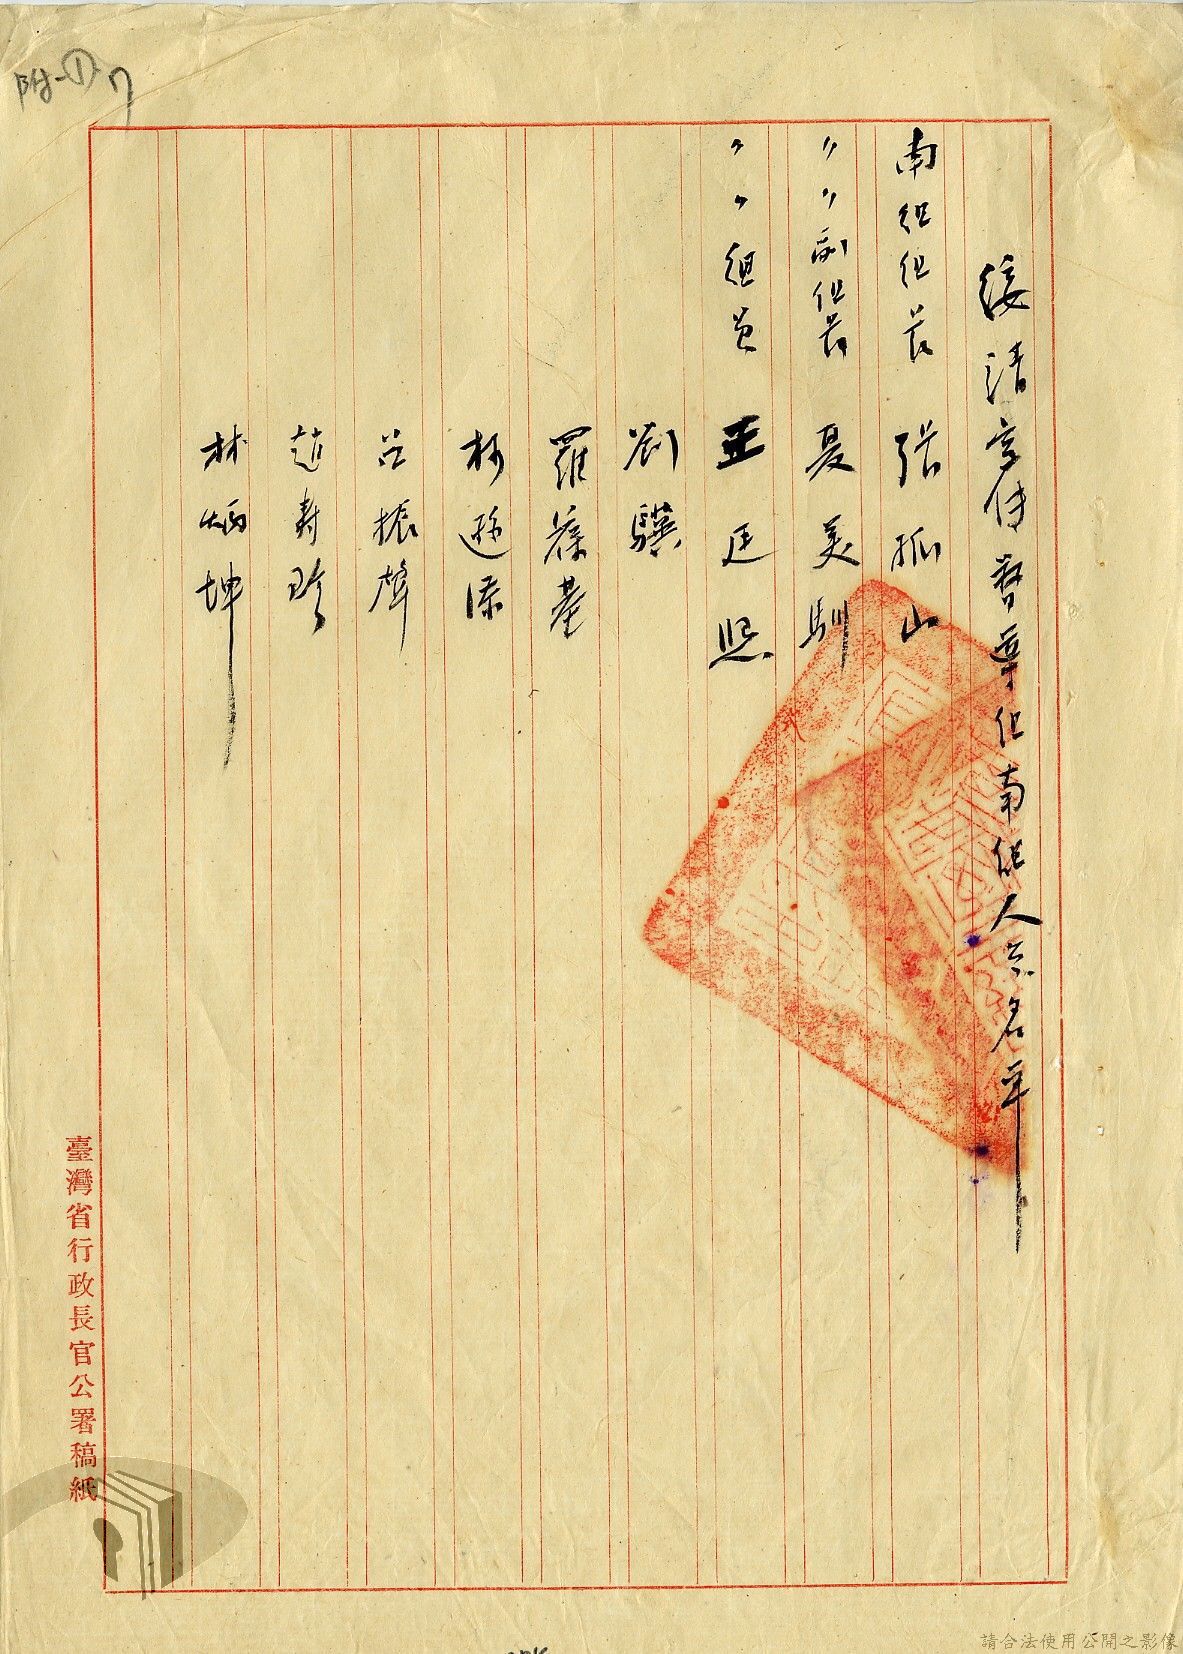 附-①-7
綏靖宣傳督導組南組人員名單
南組組長 張孤山
〃〃副組長 夏美馴
〃〃組員 王廷熙
劉驥
羅葆基
林遜添
呂振聲
趙壽珍
林炳坤
臺灣省行政長官公署稿紙
請合法使用公開之影像